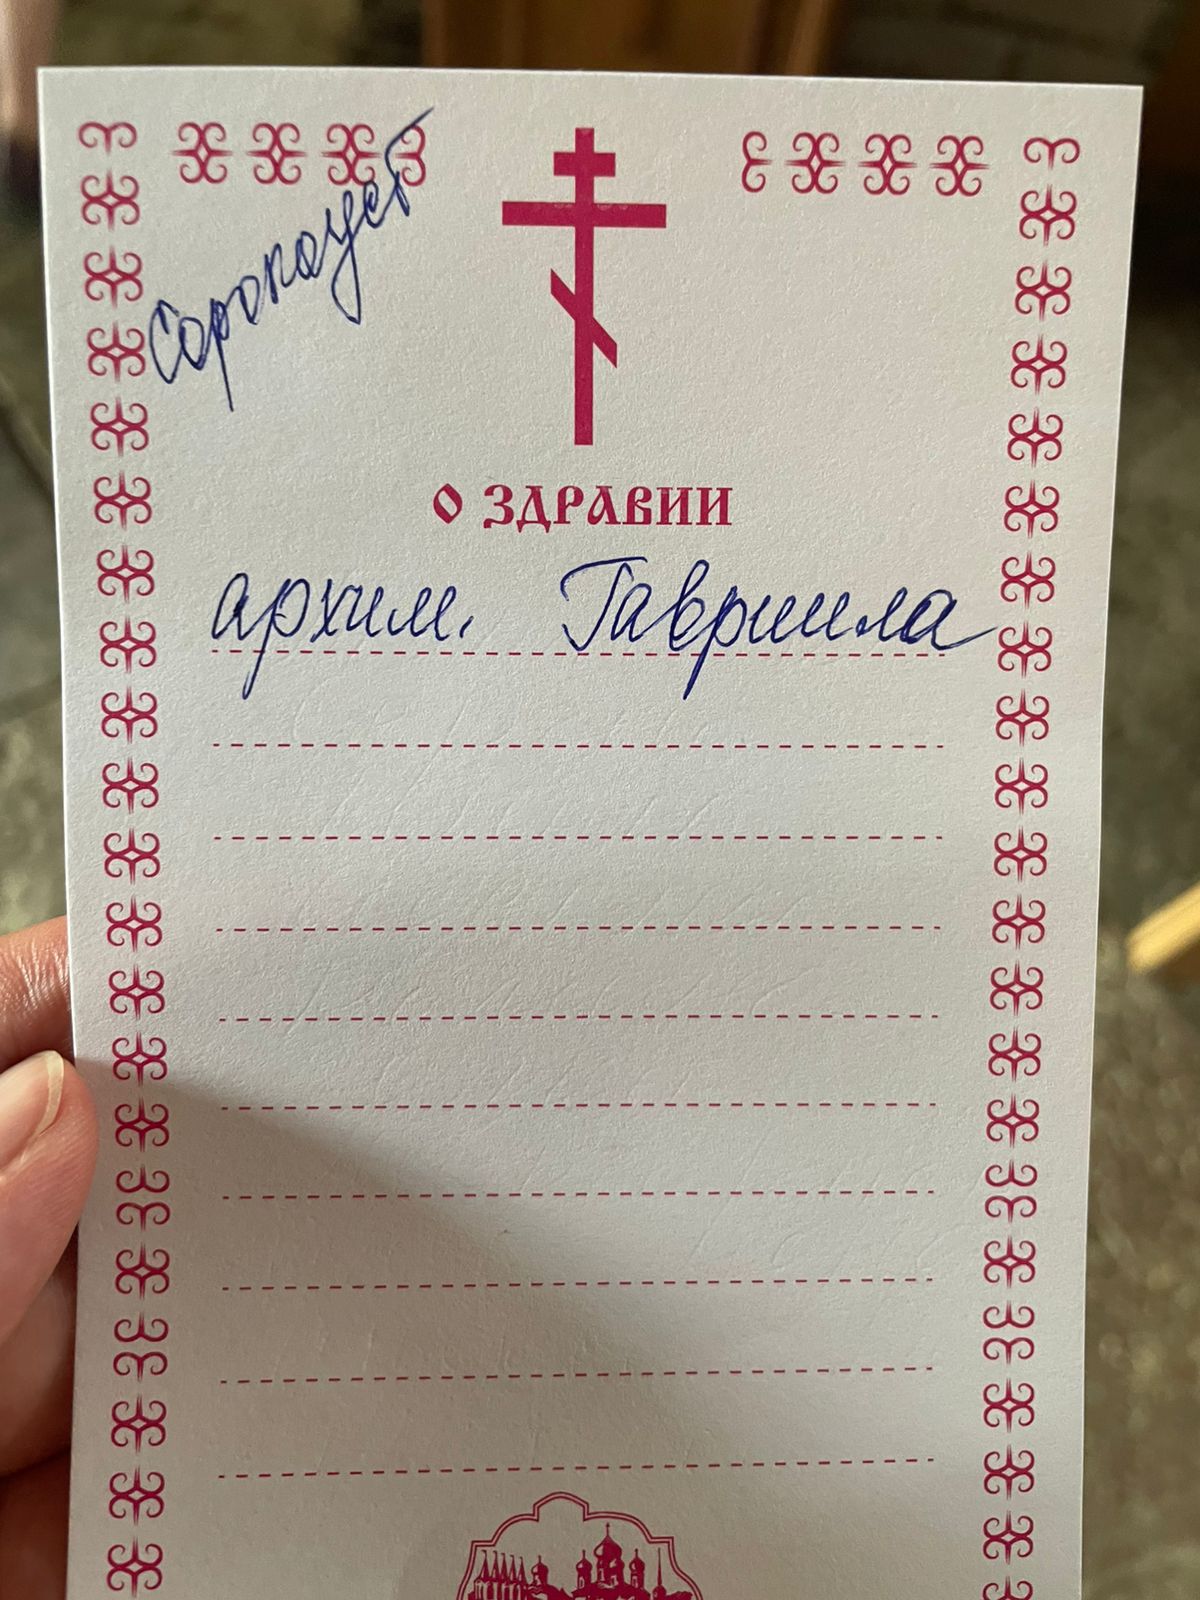 Сорокоуст
О ЗДРАВИИ
архим. Гавриила